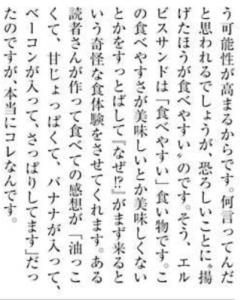 う可能性が高まるからです。何言ってんだ
と思われるでしょうが、恐ろしいことに、揚
げたほうが食べやすい〟のです。そう、エル
ビスサンドは「食べやすい」食い物です。こ
の食べやすさが美味しいとか美味しくない
とかをすっとばして『なぜ!?』がまず来ると
いう奇怪な食体験をさせてくれます。ある
読者さんが作って食べての感想が「油っこ
くて、甘じょっぱくて、バナナが入って、
ベーコンが入って、さっぱりしてます」だっ
たのですが、本当にコレなんです。